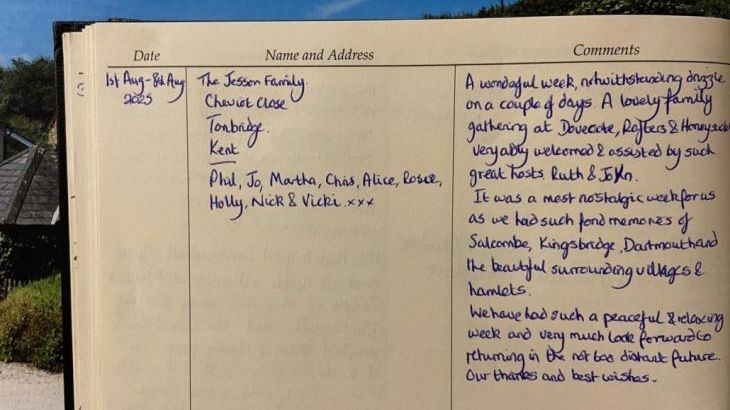 Date
Name and Address
Comments
1st Aug - 8th Aug
2025
The Jesson Family.
Cheviot Close
Tonbridge.
Kent
Phil, Jo, Martha, Chris, Alice, Rosie,
Holly, Nick & Vicki xxx
A wonderful week, notwithstanding drizzle
on a couple of days. A lovely family
gathering at Dovecote, Rafters & Honeysuckle
very ably welcomed & assisted by such
great hosts, Ruth & John.
It was a most nostalgic week for us
as we had such fond memories of
Salcombe, Kingsbridge, Dartmouth and
the beautiful surrounding villages &
hamlets.
We have had such a peaceful & relaxing
week and very much look forward to
returning in the not too distant future.
Our thanks and best wishes.